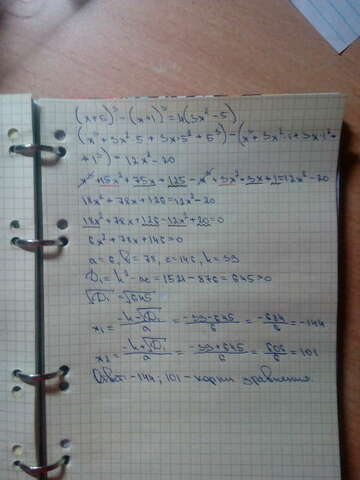 (x+5)³-(x+1)³=4(3x²-5)
(x³+3x²·5+3x·5²+5³)-(x³+3x²·1+3x·1²+
+1³)=12x²-20
x³+15x²+75x+125-x³+3x²+3x+1=12x²-20
18x²+78x+126=12x²-20
18x²+78x+126-12x²+20=0
6x²+78x+146=0
a=6, b=78, c=146, k=39
D₁=k²-ac=1521-876=645>0
√D₁=√645
x₁=(-k-√D₁)/a=(-39-645)/6=(-684)/6=-144
x₂=(-k+√D₁)/a=(-39+645)/6=606/6=101
Ответ: -144; 101 - корни уравнения.